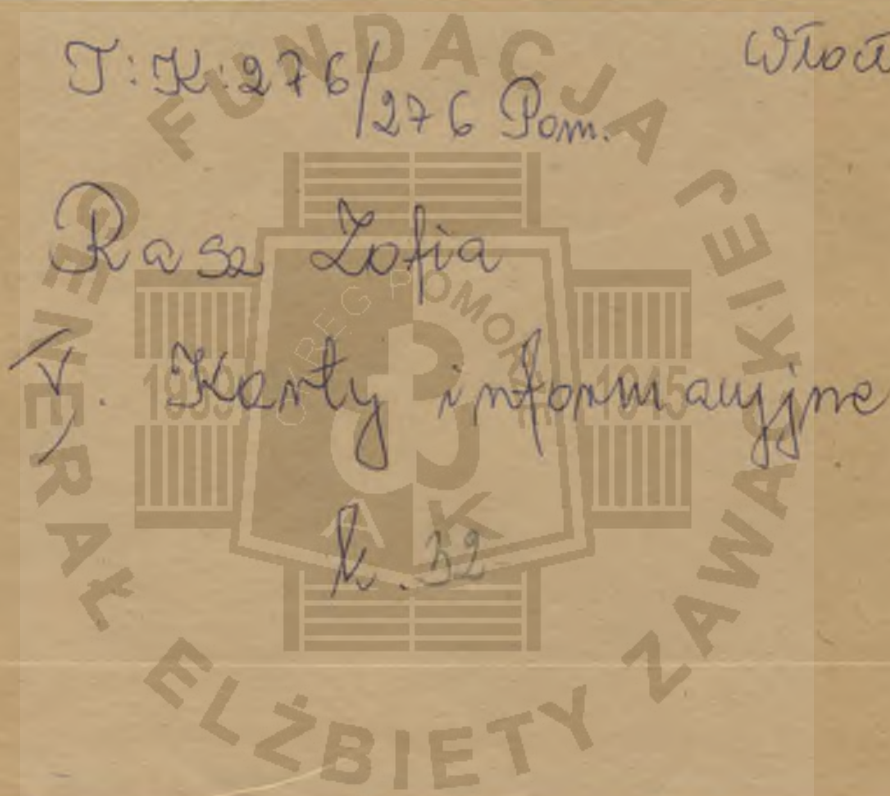 T:K:276/276 Pom.
Włocł
Rasz Zofia
V. Karty informacyjne
k. 32
FUNDACJA
GENERAŁ ELŻBIETY ZAWACKIEJ
OKRĘG POMORZE
1939 1945
AK